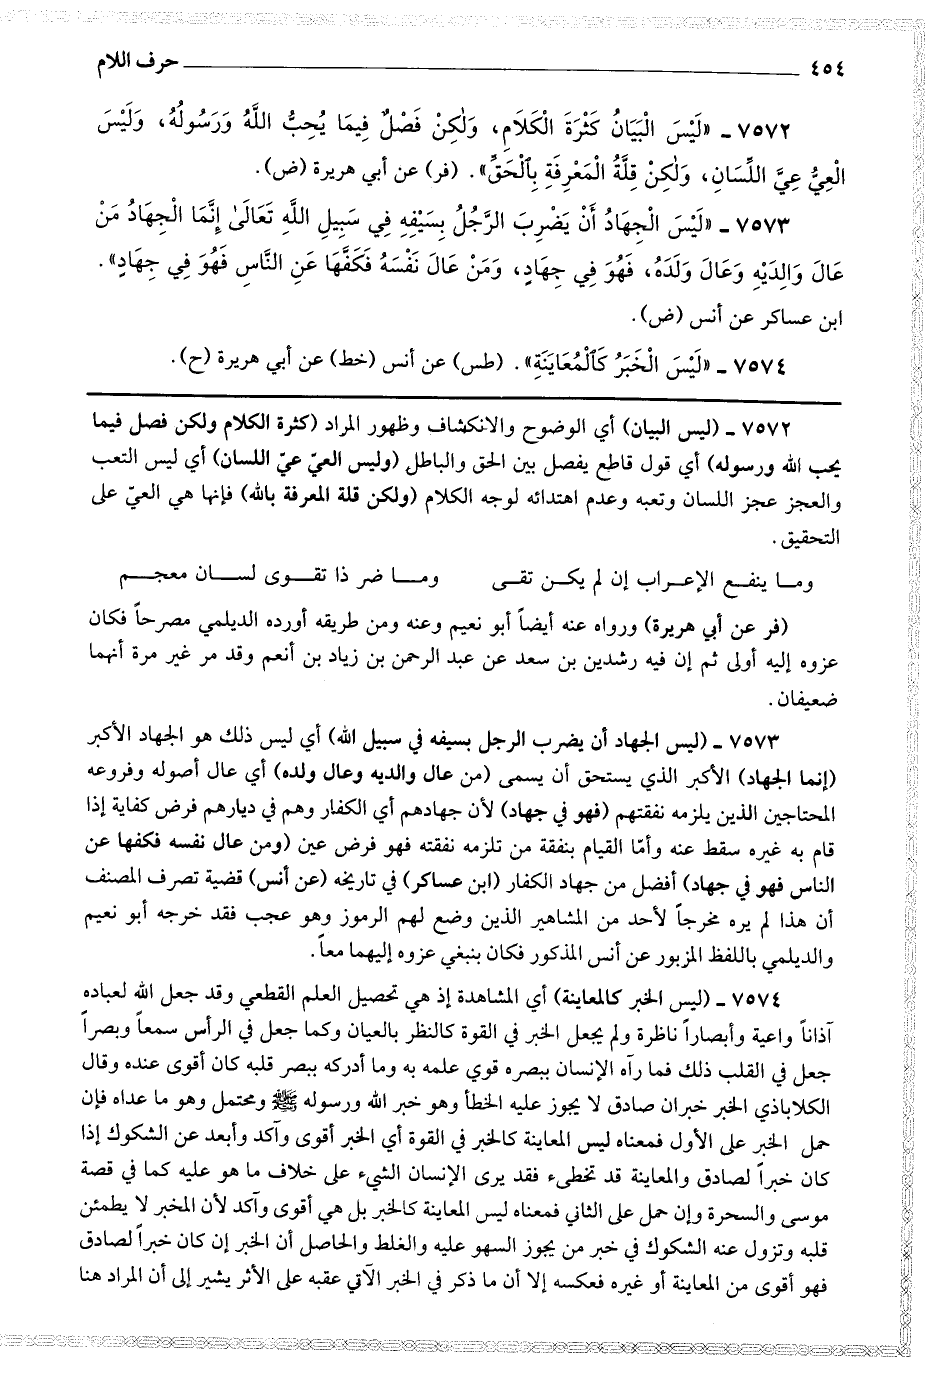 ٤٥٤ ــــــــــــــــــــــــــــــــــــــــــــــــــ حرف اللام
٧٥٧٢ ـ «لَيْسَ الْبَيَانُ كَثْرَةَ الْكَلَامِ، وَلٰكِنْ فَصْلٌ فِيمَا يُحِبُّ اللَّهُ وَرَسُولُهُ، وَلَيْسَ
الْعِيُّ عِيَّ اللِّسَانِ، وَلٰكِنْ قِلَّةُ الْمَعْرِفَةِ بِٱلْحَقِّ». (فر) عن أبي هريرة (ض).
٧٥٧٣ ـ «لَيْسَ الْجِهَادُ أَنْ يَضْرِبَ الرَّجُلُ بِسَيْفِهِ فِي سَبِيلِ اللَّهِ تَعَالَىٰ إِنَّمَا الْجِهَادُ مَنْ
عَالَ وَالِدَيْهِ وَعَالَ وَلَدَهُ، فَهُوَ فِي جِهَادٍ، وَمَنْ عَالَ نَفْسَهُ فَكَفَّهَا عَنِ النَّاسِ فَهُوَ فِي جِهَادٍ».
ابن عساكر عن أنس (ض).
٧٥٧٤ ـ «لَيْسَ الْخَبَرُ كَٱلْمُعَايَنَةِ». (طس) عن أنس (خط) عن أبي هريرة (ح).
٧٥٧٢ ـ (ليس البيان) أي الوضوح والانكشاف وظهور المراد (كثرة الكلام ولكن فصل فيما
يحب الله ورسوله) أي قول قاطع يفصل بين الحق والباطل (وليس العيّ عيّ اللسان) أي ليس التعب
والعجز عجز اللسان وتعبه وعدم اهتدائه لوجه الكلام (ولكن قلة المعرفة بالله) فإنها هي العيّ على
التحقيق.
وما ينفع الإعراب إن لم يكن تقى وما ضر ذا تقوى لسان معجم
(فر عن أبي هريرة) ورواه عنه أيضاً أبو نعيم وعنه ومن طريقه أورده الديلمي مصرحاً فكان
عزوه إليه أولى ثم إن فيه رشدين بن سعد عن عبد الرحمن بن زياد بن أنعم وقد مر غير مرة أنهما
ضعيفان.
٧٥٧٣ ـ (ليس الجهاد أن يضرب الرجل بسيفه في سبيل الله) أي ليس ذلك هو الجهاد الأكبر
(إنما الجهاد) الأكبر الذي يستحق أن يسمى (من عال والديه وعال ولده) أي عال أصوله وفروعه
المحتاجين الذين يلزمه نفقتهم (فهو في جهاد) لأن جهادهم أي الكفار وهم في ديارهم فرض كفاية إذا
قام به غيره سقط عنه وأمّا القيام بنفقة من تلزمه نفقته فهو فرض عين (ومن عال نفسه فكفها عن
الناس فهو في جهاد) أفضل من جهاد الكفار (ابن عساكر) في تاريخه (عن أنس) قضية تصرف المصنف
أن هذا لم يره مخرجاً لأحد من المشاهير الذين وضع لهم الرموز وهو عجب فقد خرجه أبو نعيم
والديلمي باللفظ المزبور عن أنس المذكور فكان ينبغي عزوه إليهما معاً.
٧٥٧٤ ـ (ليس الخبر كالمعاينة) أي المشاهدة إذ هي تحصيل العلم القطعي وقد جعل الله لعباده
آذاناً واعية وأبصاراً ناظرة ولم يجعل الخبر في القوة كالنظر بالعيان وكما جعل في الرأس سمعاً وبصراً
جعل في القلب ذلك فما رآه الإنسان ببصره قوي علمه به وما أدركه ببصر قلبه كان أقوى عنده وقال
الكلاباذي الخبر خبران صادق لا يجوز عليه الخطأ وهو خبر الله ورسوله ﷺ ومحتمل وهو ما عداه فإن
حمل الخبر على الأول فمعناه ليس المعاينة كالخبر في القوة أي الخبر أقوى وآكد وأبعد عن الشكوك إذا
كان خبراً لصادق والمعاينة قد تخطىء فقد يرى الإنسان الشيء على خلاف ما هو عليه كما في قصة
موسى والسحرة وإن حمل على الثاني فمعناه ليس المعاينة كالخبر بل هي أقوى وآكد لأن المخبر لا يطمئن
قلبه وتزول عنه الشكوك في خبر من يجوز السهو عليه والغلط والحاصل أن الخبر إن كان خبراً لصادق
فهو أقوى من المعاينة أو غيره فعكسه إلا أن ما ذكر في الخبر الآتي عقبه على الأثر يشير إلى أن المراد هنا